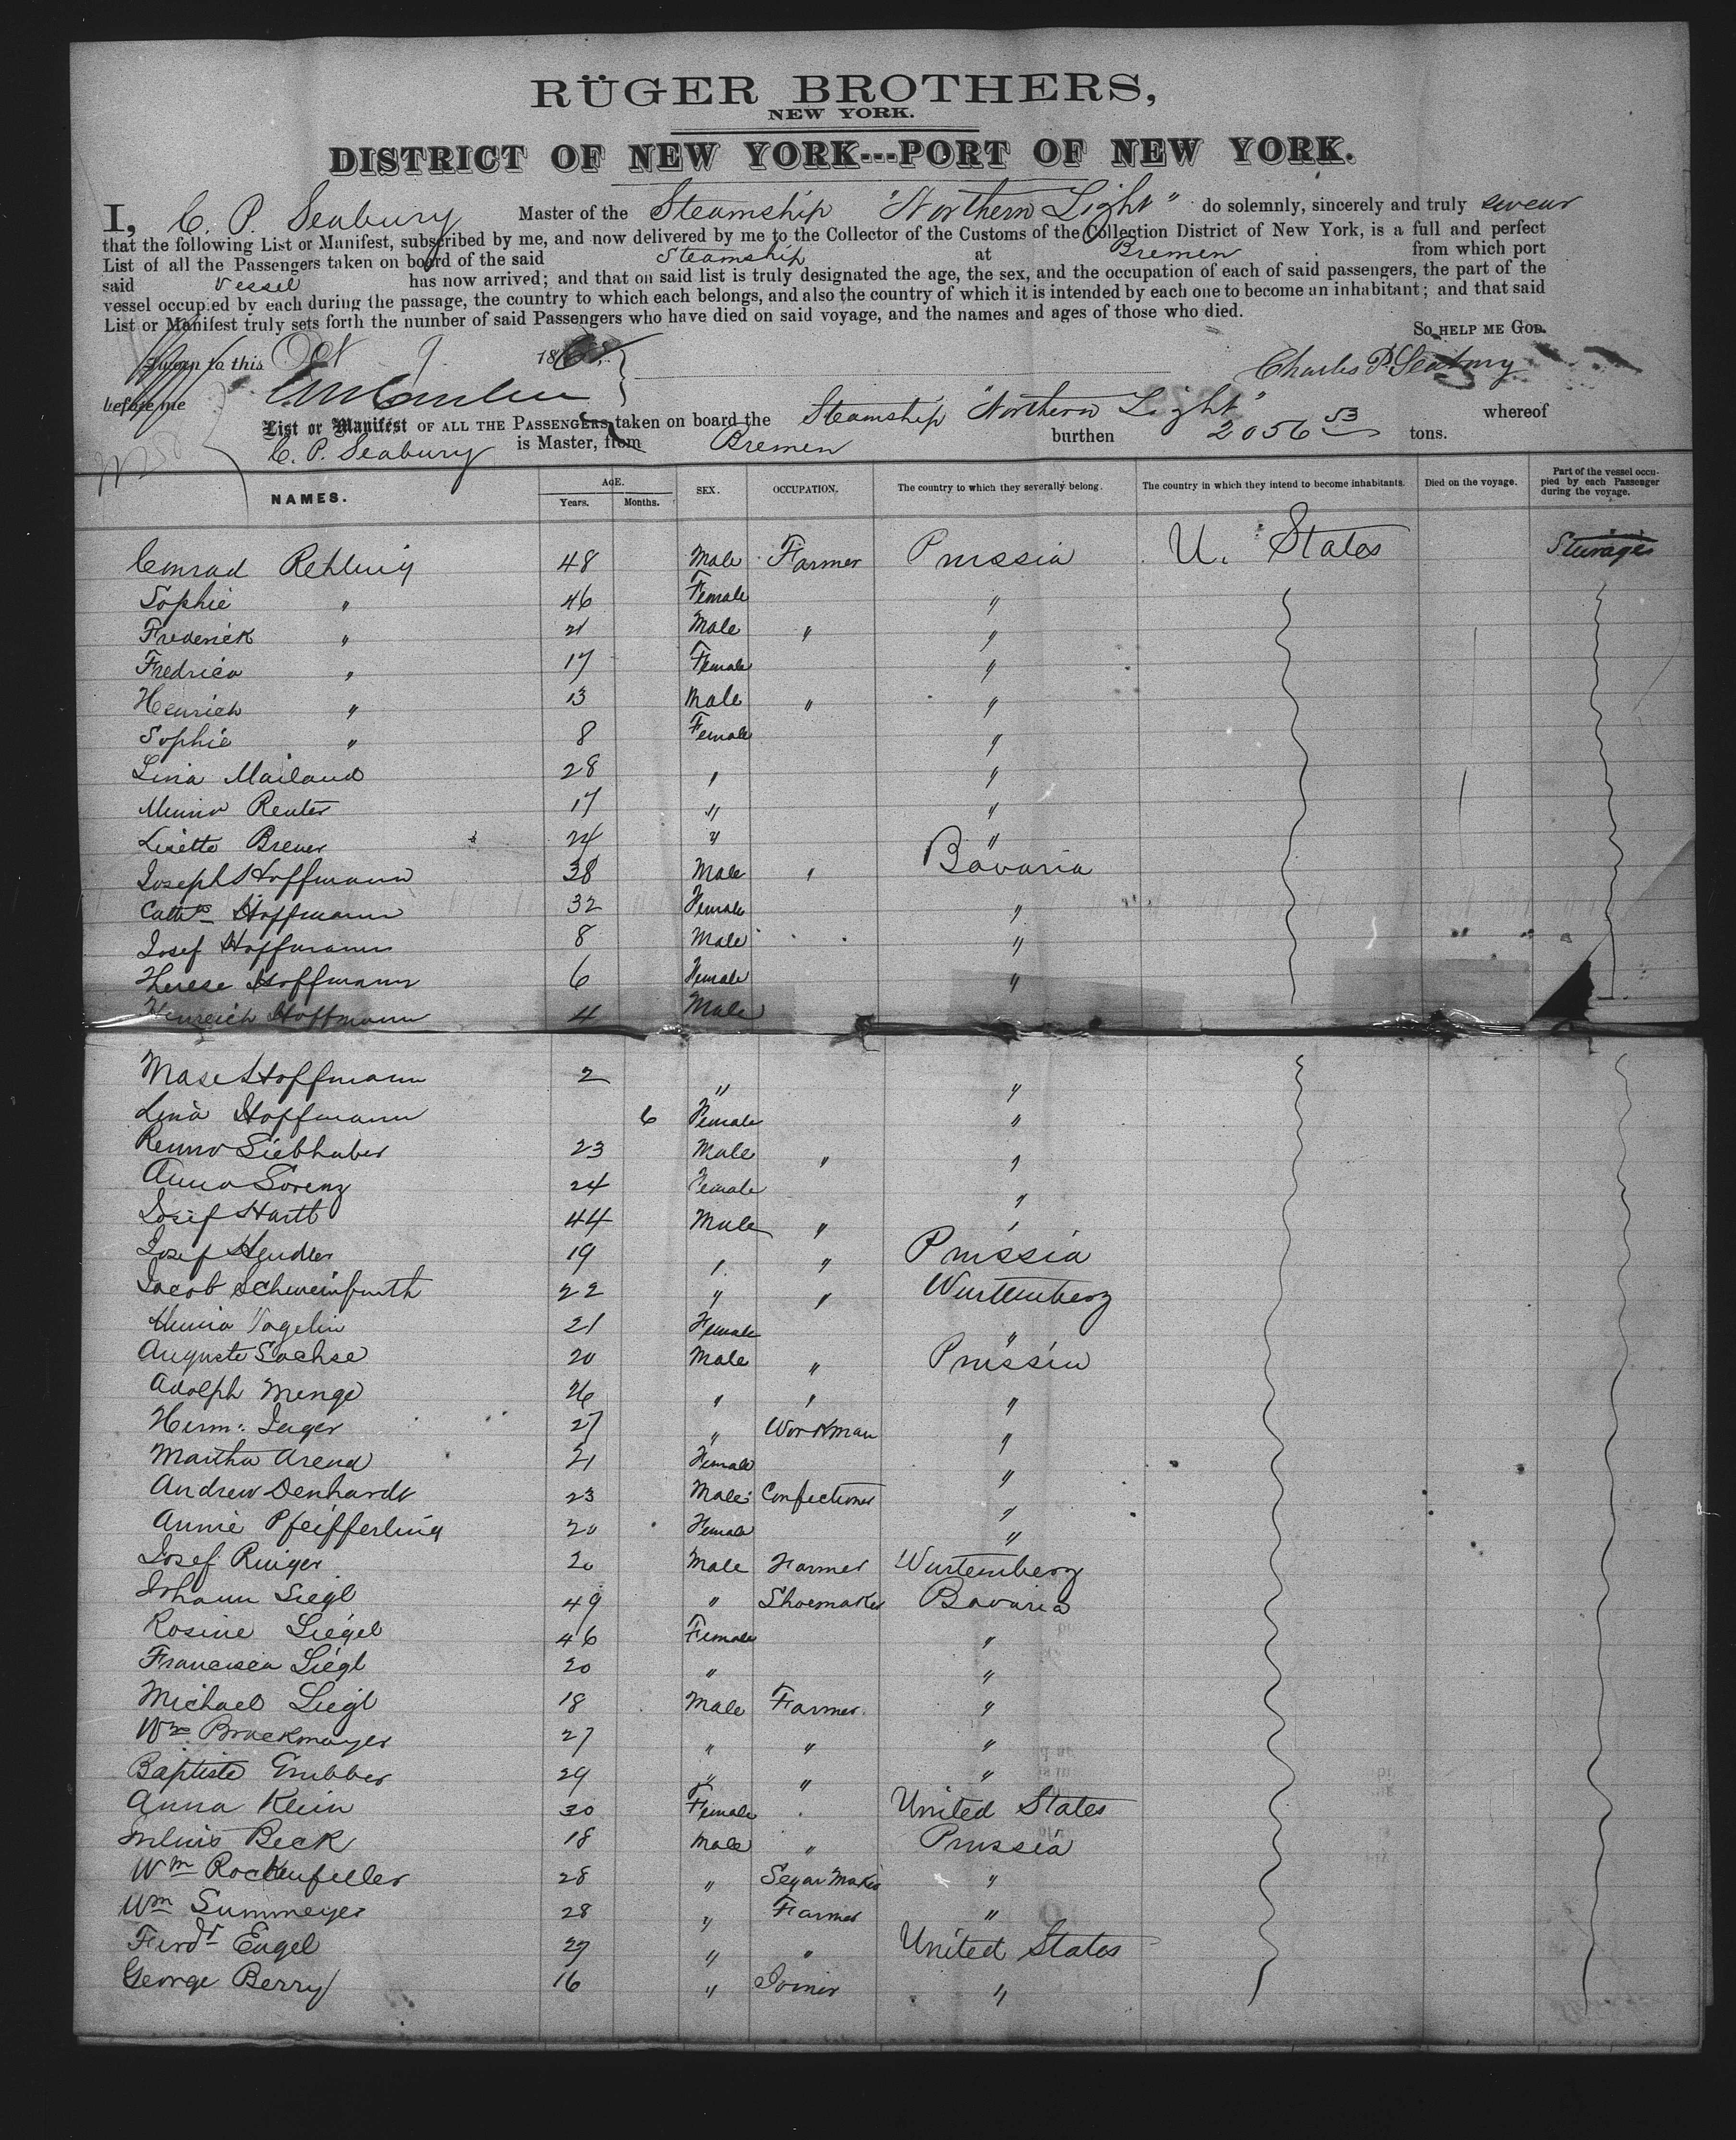 RÜGER BROTHERS,
NEW YORK.
DISTRICT OF NEW YORK---PORT OF NEW YORK.
I, C. P. Seabury Master of the Steamship "Northern Light" do solemnly, sincerely and truly swear
that the following List or Manifest, subscribed by me, and now delivered by me to the Collector of the Customs of the Collection District of New York, is a full and perfect
List of all the Passengers taken on board of the said Steamship at Bremen from which port
said Vessel has now arrived; and that on said list is truly designated the age, the sex, and the occupation of each of said passengers, the part of the
vessel occupied by each during the passage, the country to which each belongs, and also the country of which it is intended by each one to become an inhabitant; and that said
List or Manifest truly sets forth the number of said Passengers who have died on said voyage, and the names and ages of those who died.
SO HELP ME GOD.
Sworn to this Oct 9 186
Charles P. Seabury
before me
List or Manifest OF ALL THE PASSENGERS taken on board the Steamship "Northern Light" whereof
C. P. Seabury is Master, from Bremen burthen 2056 53 tons.
NAMES. AGE. Years. Months. SEX. OCCUPATION. The country to which they severally belong. The country in which they intend to become inhabitants. Died on the voyage. Part of the vessel occupied by each Passenger during the voyage.
Conrad Rehling 48 Male Farmer Prussia U. States Sturage
Sophie " 46 Female "
Frederick " 21 Male " "
Fredrica " 17 Female "
Heinrich " 13 Male " "
Sophie " 8 Female "
Lina Mailand 28 " "
Minna Reuter 17 " "
Linette Brener 24 " "
Joseph Hoffmann 38 Male " Bavaria
Hoffmann 32 Female "
Josef Hoffmann 8 Male "
Therese Hoffmann 6 Female "
Heinreich Hoffmann 4 Male
Hoffmann 2 " "
Lina Hoffmann 6 Female "
Siebhuber 23 Male " "
Anna Lorenz 24 Female "
Josef Hartl 44 Male " "
Josef Hendler 19 " " Prussia
Jacob Schweinfurth 22 " " Wurttemberg
Vogelin 21 Female "
Auguste Sachse 20 Male " Prussia
Adolph Menge 26 " " "
Herm: Jager 27 " Workman "
Martha Arend 21 Female "
Andrew Denhardt 23 Male Confectioner "
Annie Pfeifferling 20 Female "
Josef 20 Male Farmer Wurtemberg
Johann Liegl 49 " Shoemaker Bavaria
Rosine Liegel 46 Female "
Francisca Liegl 20 " "
Michael Liegl 18 Male Farmer "
Wm Brackmayer 27 " " "
Baptiste Grubber 29 " " "
Anna Klein 30 Female United States
Julius Beck 18 Male " Prussia
Wm Rockenfeller 28 " Segar Maker "
Wm Summeyer 28 " Farmer "
Ferdt Engel 27 " " United States
George Berry 16 " Joiner "